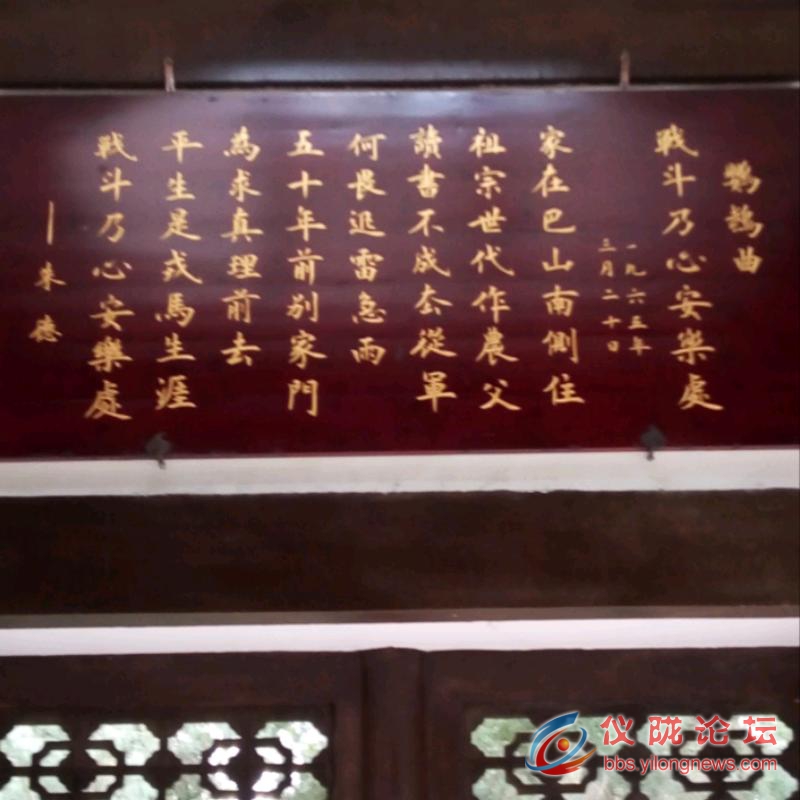 鸚鵡曲
戰斗乃心安樂處
一九六五年
三月二十日
家在巴山南側住
祖宗世代作農父
讀書不成厺從軍
何畏迅雷急雨
五十年前别家門
為求真理前去
平生是戎馬生涯
戰斗乃心安樂處
—朱德
仪陇论坛
bbs.yilongnews.com